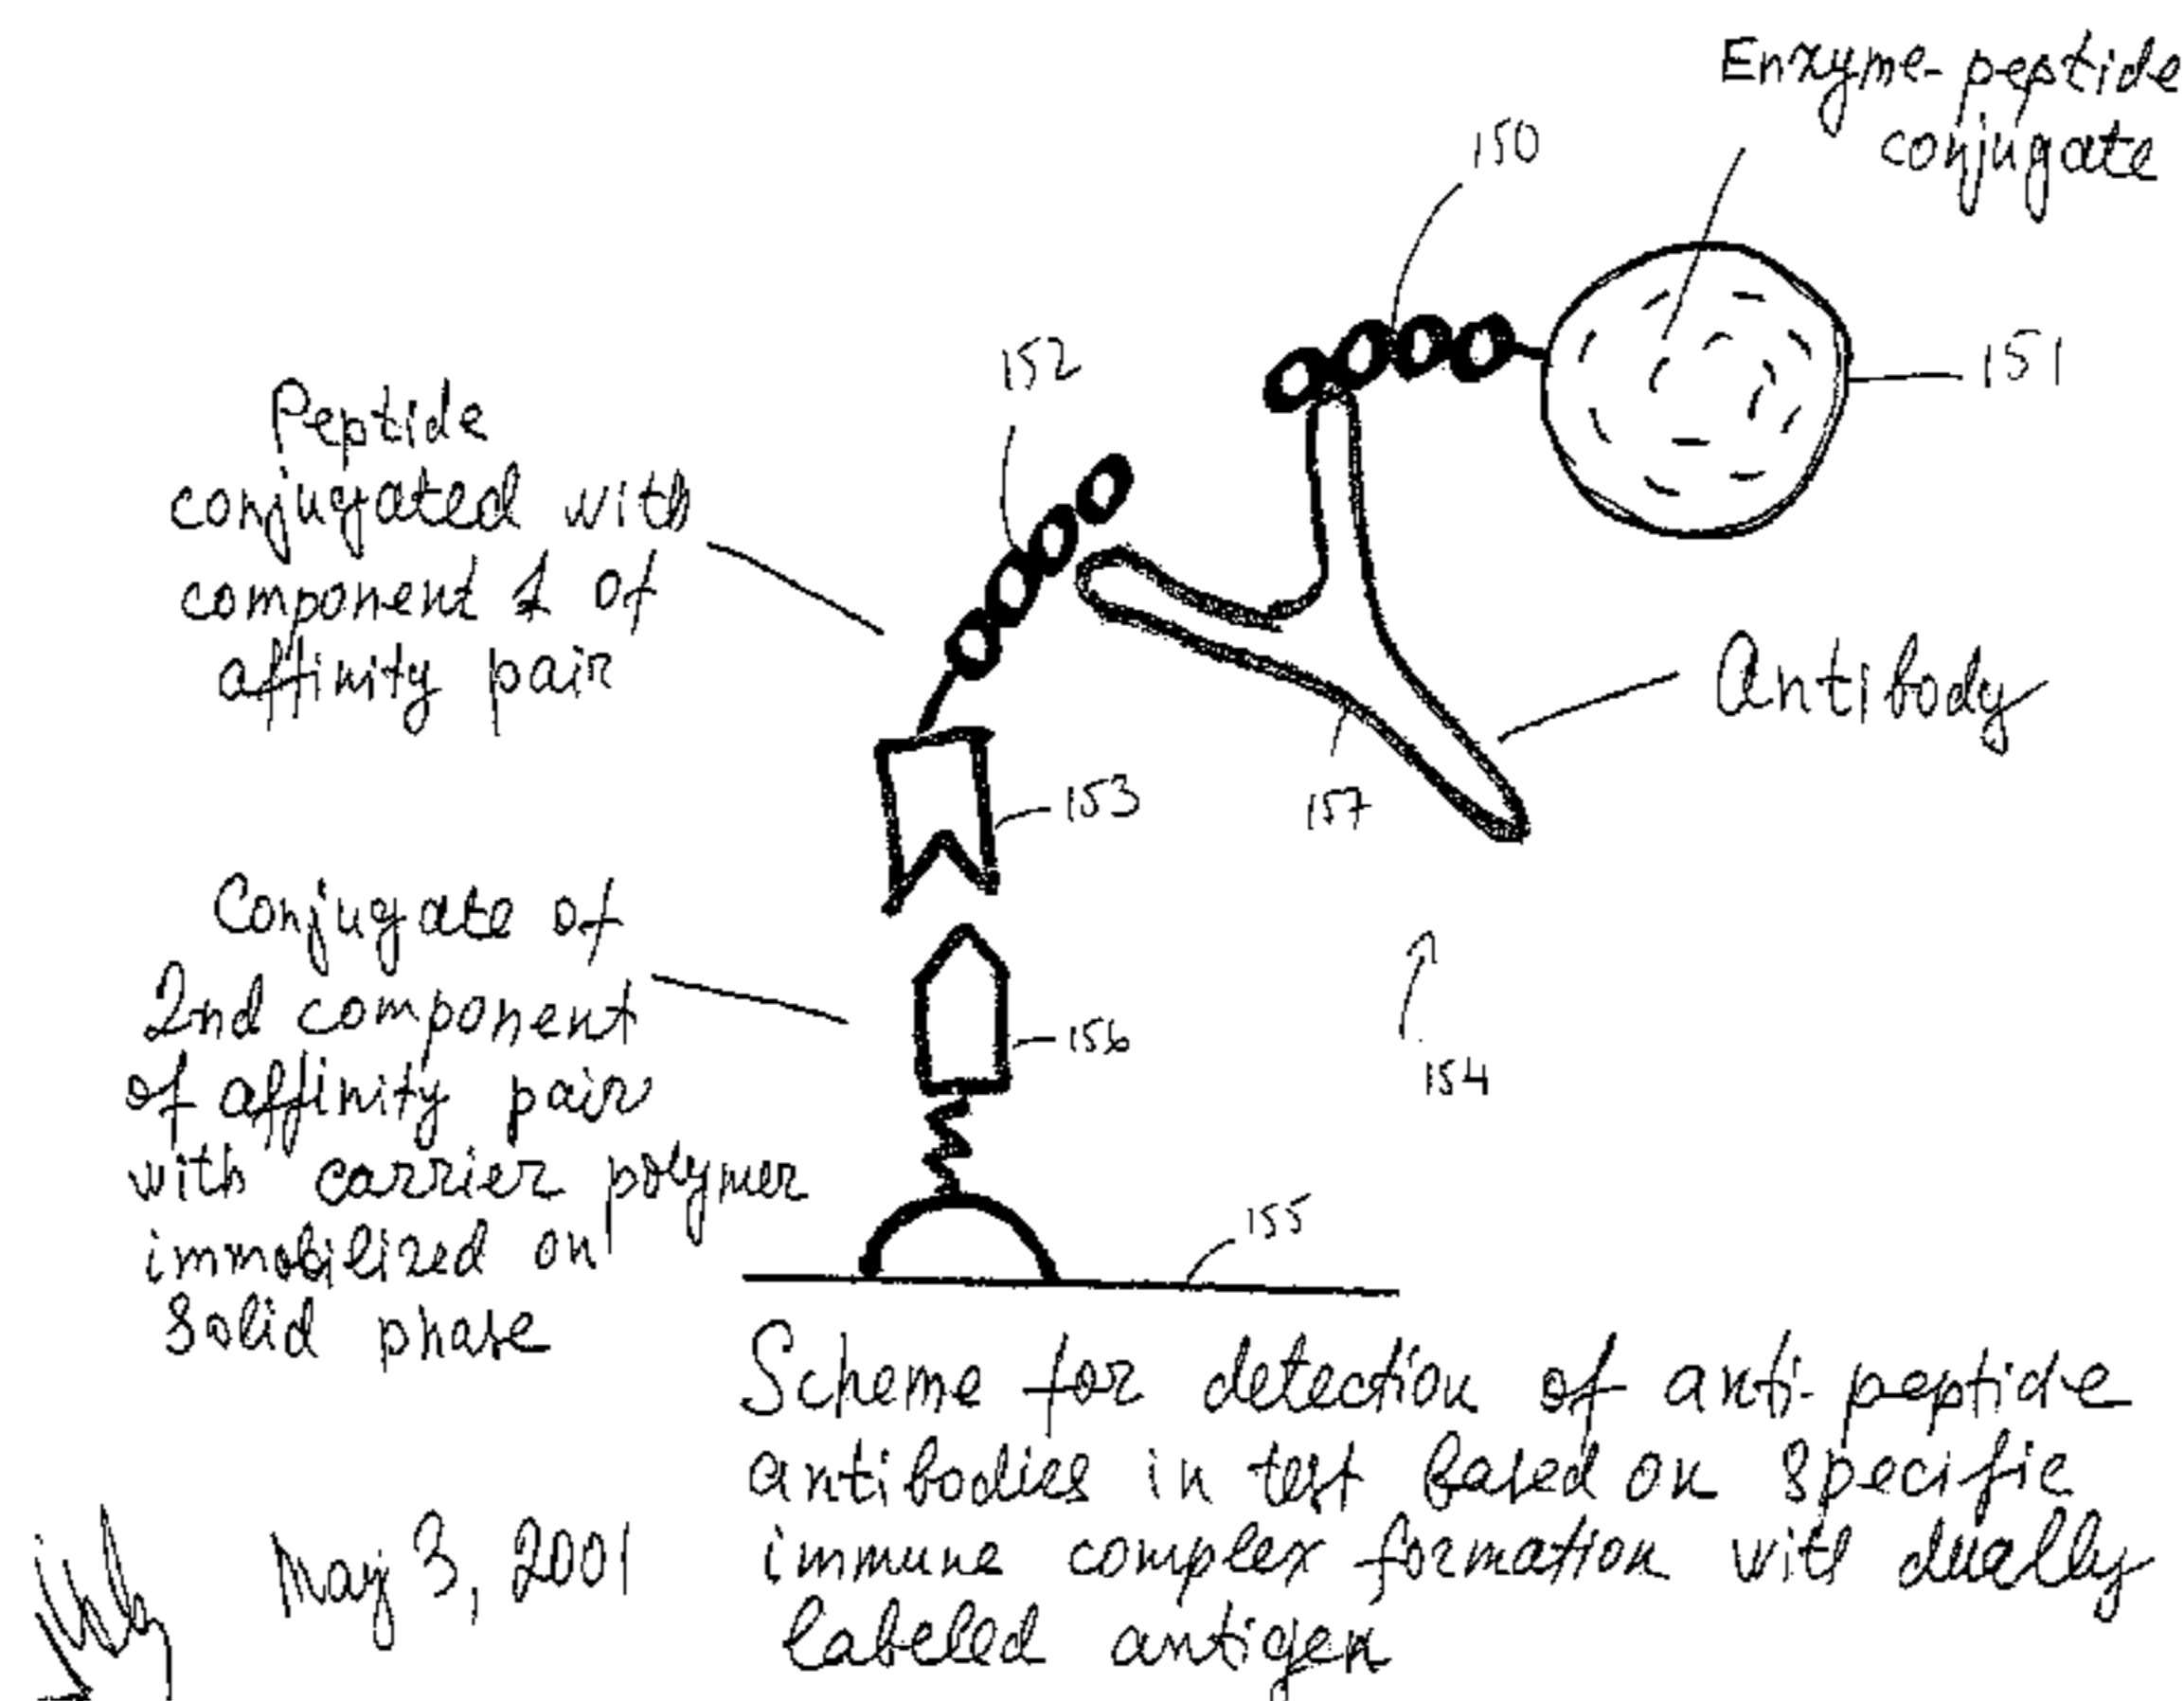 Enzyme-peptide
conjugate
150
151
152
Peptide
conjugated with
component 1 of
affinity pair
Antibody
153
157
Conjugate of
2nd component
of affinity pair
with carrier polymer
immobilized on
solid phase
156
154
155
Scheme for detection of anti-peptide
antibodies in test based on specific
immune complex formation with dually
labeled antigen
May 3, 2001